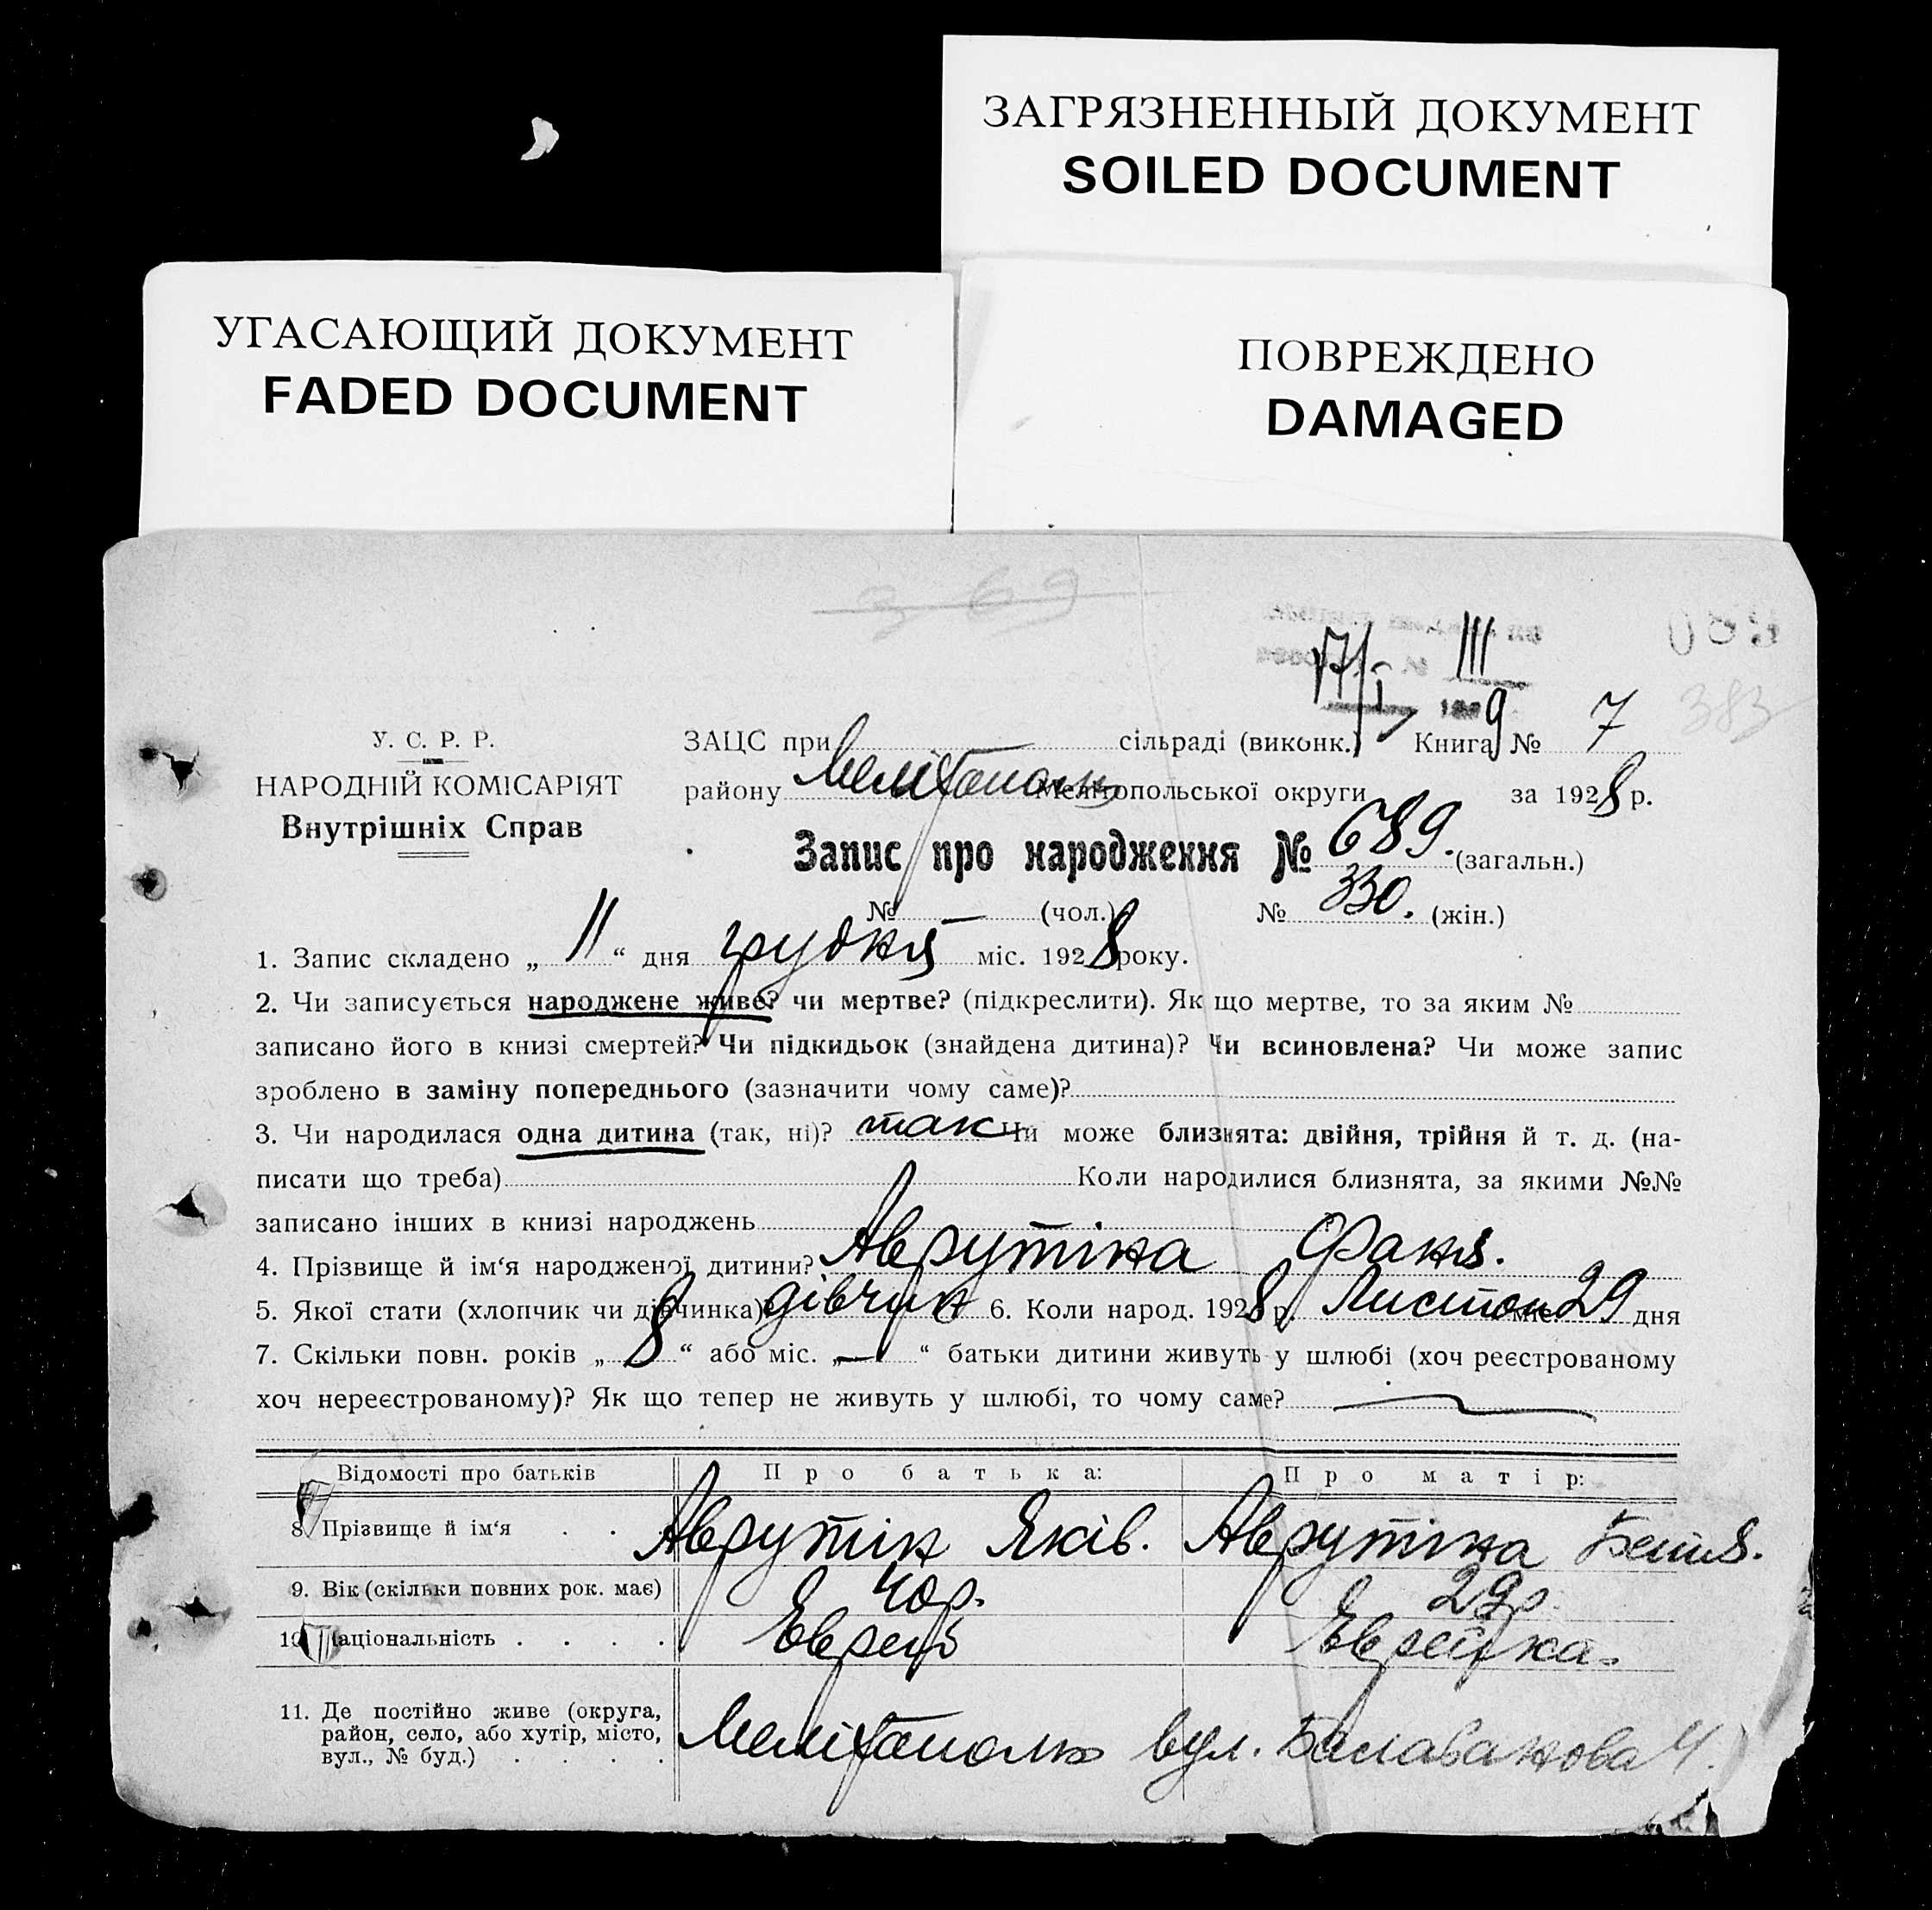 ЗАГРЯЗНЕННЫЙ ДОКУМЕНТ
SOILED DOCUMENT
УГАСАЮЩИЙ ДОКУМЕНТ
FADED DOCUMENT
ПОВРЕЖДЕНО
DAMAGED
3 69
17/I III
383
У. С. Р. Р.
НАРОДНІЙ КОМІСАРІЯТ
Внутрішніх Справ
ЗАЦС при сільраді (виконк.) Книга № 7
району Мелітополь Мелітопольської округи за 1928 р.
Запис про народження № 689. (загальн.)
№ — (чол.) № 330. (жін.)
1. Запис складено „ 11 “ дня грудня міс. 1928 року.
2. Чи записується народжене живе? чи мертве? (підкреслити). Як що мертве, то за яким №
записано його в книзі смертей? Чи підкидьок (знайдена дитина)? Чи всиновлена? Чи може запис
зроблено в заміну попереднього (зазначити чому саме)?
3. Чи народилася одна дитина (так, ні)? так Чи може близнята: двійня, трійня й т. д. (на-
писати що треба) Коли народилися близнята, за якими №№
записано інших в книзі народжень
4. Прізвище й ім‘я народженої дитини? Аврутіна Фаня.
5. Якої стати (хлопчик чи дівчинка)? дівчин 6. Коли народ. 1928 р. Листоп міс. 29 дня
7. Скільки повн. років „ 8 “ або міс. „ — “ батьки дитини живуть у шлюбі (хоч реєстрованому
хоч нереєстрованому)? Як що тепер не живуть у шлюбі, то чому саме? —
Відомості про батьків Про батька: Про матір:
8. Прізвище й ім‘я . . Аврутін Яків. Аврутіна Бетя.
9. Вік (скільки повних рок. має) 40 р. 29 р.
10. Національність . . . . Еврей Еврейка.
11. Де постійно живе (округа,
район, село, або хутір, місто,
вул., № буд.) . . . . Мелітополь вул. 4.